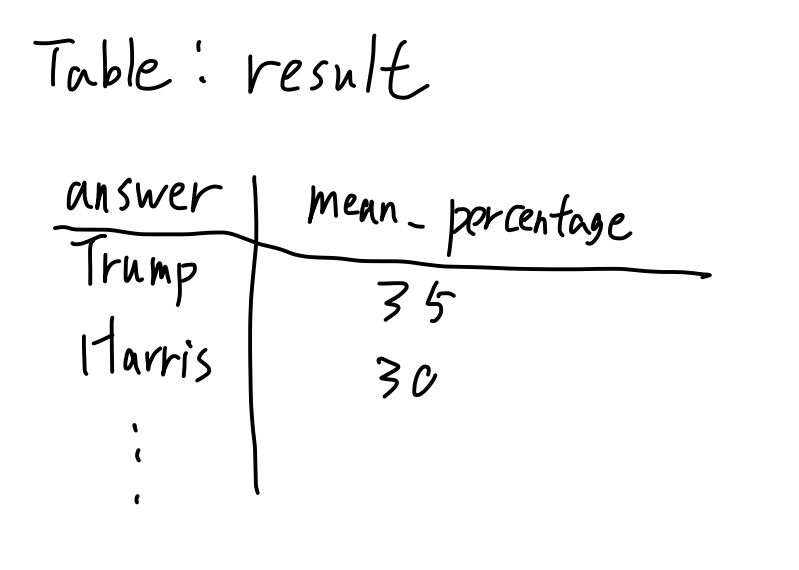 Table: result
answer mean_percentage
Trump 35
Harris 30
⋮